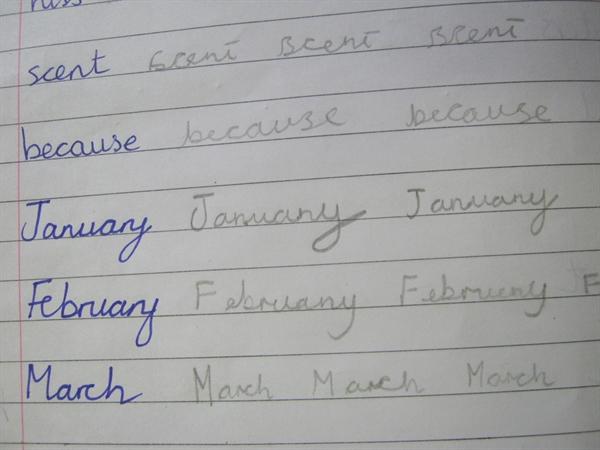 scent scent scent scent
because because because
January January January
February February February F
March March March March